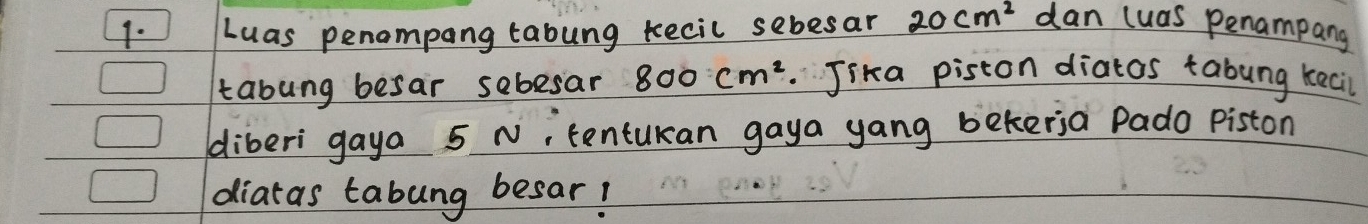 1. Luas penampang tabung kecil sebesar 20 cm² dan luas penampang
tabung besar sebesar 800 cm². Jika piston diatas tabung kecil
diberi gaya 5 N, tentukan gaya yang bekerja pada piston
diatas tabung besar!